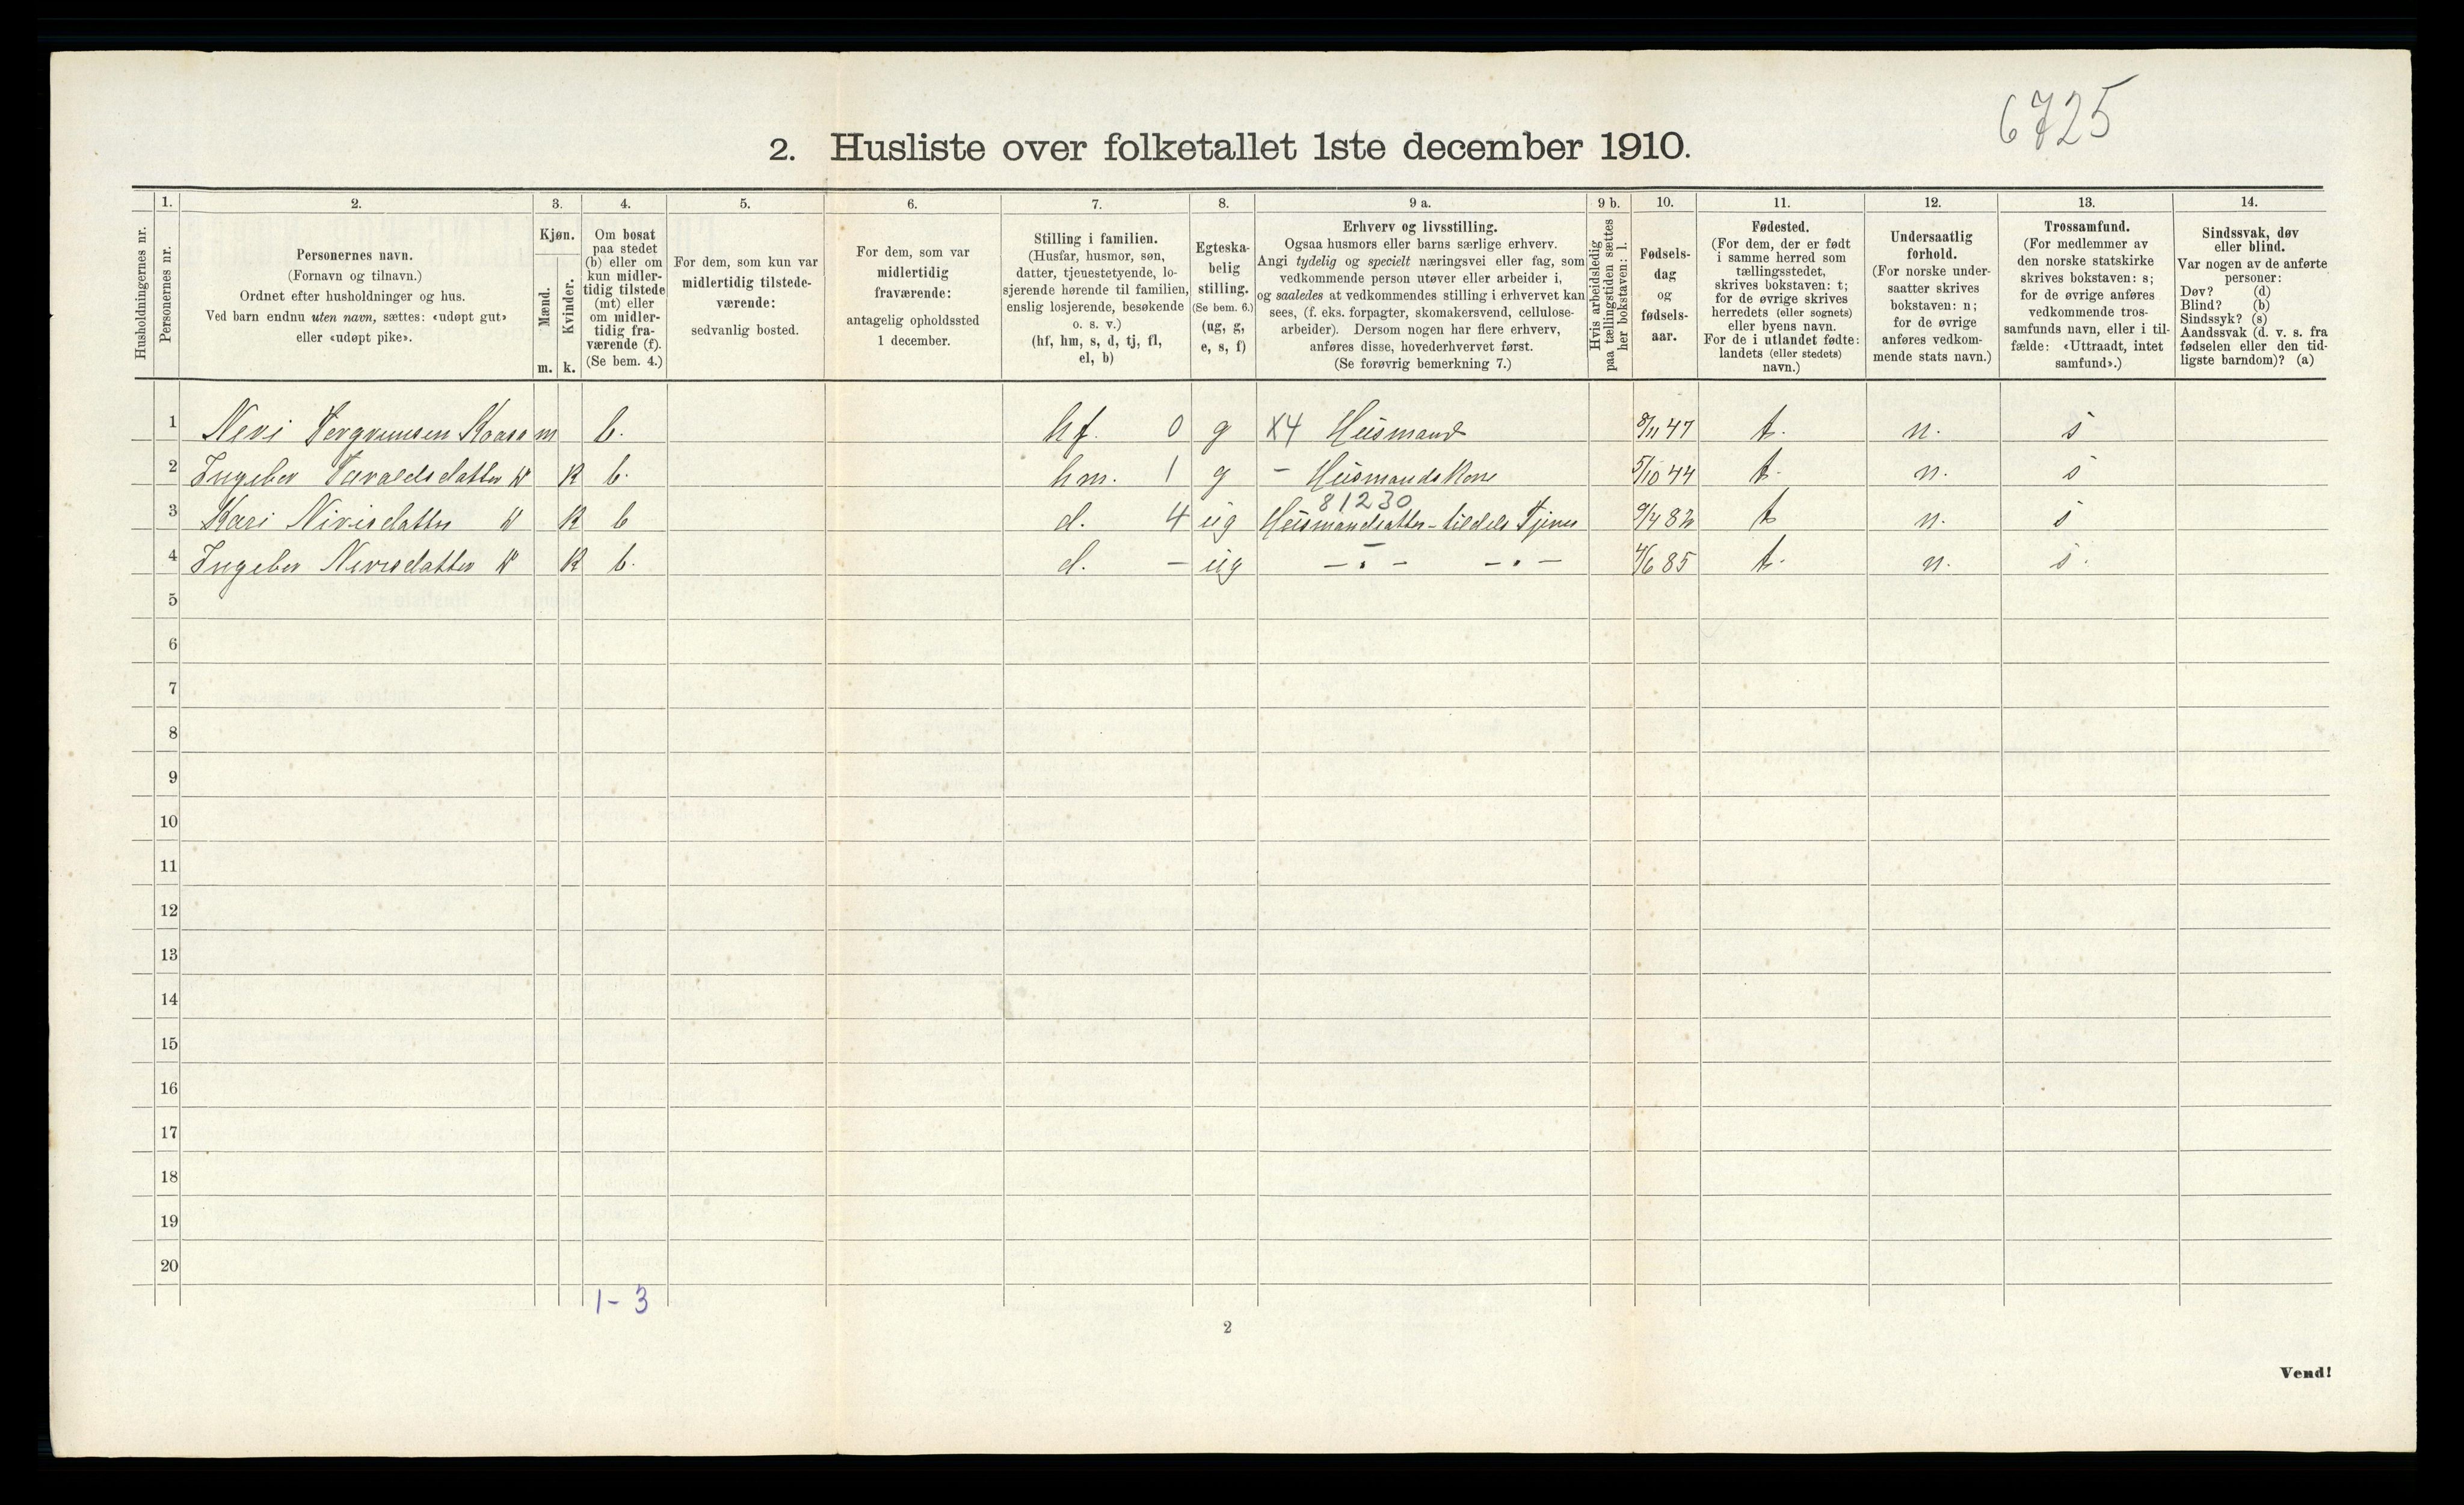 6725
2. Husliste over folketallet 1ste december 1910.
Husholdningernes nr.
1.
Personernes nr.
2.
Personernes navn.
(Fornavn og tilnavn.)
Ordnet efter husholdninger og hus.
Ved barn endnu uten navn, sættes: «udøpt gut»
eller «udøpt pike».
3.
Kjøn.
Mænd.
Kvinder.
m. k.
4.
Om bosat
paa stedet
(b) eller om
kun midler-
tidig tilstede
(mt) eller
om midler-
tidig fra-
værende (f).
(Se bem. 4.)
5.
For dem, som kun var
midlertidig tilstede-
værende:
sedvanlig bosted.
6.
For dem, som var
midlertidig
fraværende:
antagelig opholdssted
1 december.
7.
Stilling i familien.
(Husfar, husmor, søn,
datter, tjenestetyende, lo-
sjerende hørende til familien,
enslig losjerende, besøkende
o. s. v.)
(hf, hm, s, d, tj, fl,
el, b)
8.
Egteska-
belig
stilling.
(Se bem. 6.)
(ug, g,
e, s, f)
9 a.
Erhverv og livsstilling.
Ogsaa husmors eller barns særlige erhverv.
Angi tydelig og specielt næringsvei eller fag, som
vedkommende person utøver eller arbeider i,
og saaledes at vedkommendes stilling i erhvervet kan
sees, (f. eks. forpagter, skomakersvend, cellulose-
arbeider). Dersom nogen har flere erhverv,
anføres disse, hovederhvervet først.
(Se forøvrig bemerkning 7.)
9 b.
Hvis arbeidsledig
paa tællingstiden sættes
her bokstaven: l.
10.
Fødsels-
dag
og
fødsels-
aar.
11.
Fødested.
(For dem, der er født
i samme herred som
tællingsstedet,
skrives bokstaven: t;
for de øvrige skrives
herredets (eller sognets)
eller byens navn.
For de i utlandet fødte:
landets (eller stedets)
navn.)
12.
Undersaatlig
forhold.
(For norske under-
saatter skrives
bokstaven: n;
for de øvrige
anføres vedkom-
mende stats navn.)
13.
Trossamfund.
(For medlemmer av
den norske statskirke
skrives bokstaven: s;
for de øvrige anføres
vedkommende tros-
samfunds navn, eller i til-
fælde: «Uttraadt, intet
samfund».)
14.
Sindssvak, døv
eller blind.
Var nogen av de anførte
personer:
Døv? (d)
Blind? (b)
Sindssyk? (s)
Aandssvak (d. v. s. fra
fødselen eller den tid-
ligste barndom)? (a)
1 Nevi m b. hf. 0 g X4 Husmand 8/11 47 t. n. s
2 Ingeber Taraldsdatter K b. hm. 1 g - Husmandskone 5/10 44 t. n. s
81230
3 Kari Nivisdatter K b d. 4 ug Husmandsdatter - tildels Tjener t n. s
4 Ingeber Nevisdatter K b. d. - ug -"- -"- 4/6 85 t. n. s.
5
6
7
8
9
10
11
12
13
14
15
16
17
18
19
20
1-3
2
Vend!